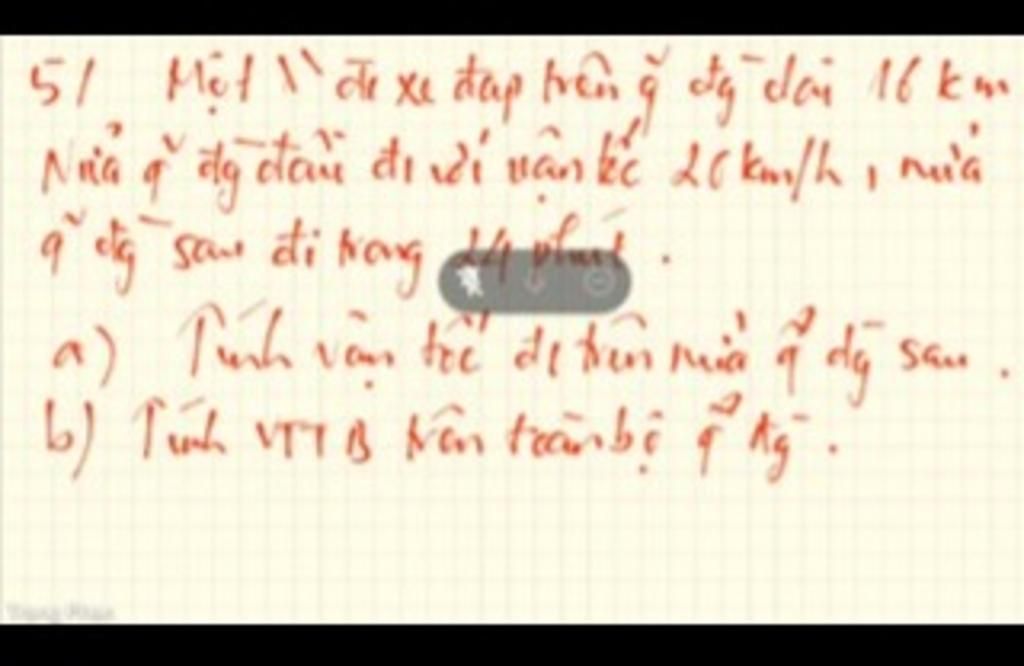 5/ Một \\` đi xe đạp trên q̆ đg̀ dài 16 km
Nửa q̆ đg̀ đầu đi với vận tốc 26 km/h, nửa
q̆ đg̀ sau đi trong 24 phút.
a) Tính vận tốc đi trên nửa q̆ đg̀ sau.
b) Tính VTTB trên toàn bộ q̆ đg̀.